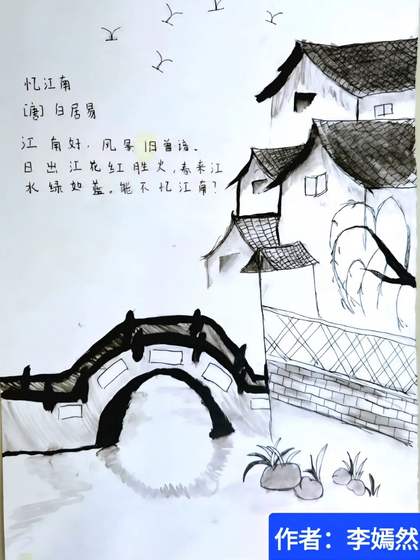 忆江南
[唐] 白居易
江南好，风景旧曾谙。
日出江花红胜火，春来江
水绿如蓝。能不忆江南？
作者：李嫣然